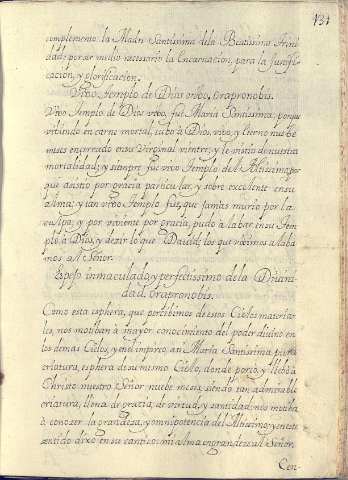 131
complemento la Madre Santissima dela Beatissima Trini-
dad: por ser medio necessario la Encarnacion, para la Justifi-
cacion, y glorificacion.
Vivo Templo de Dios vivo, Orapronobis.
Vivo Templo de Dios vivo, fue Maria Santissima, porque
viviendo en carne mortal, tubo à Dios, vivo, y Eterno nuebe
meses encerrado en su Virginal vientre, y le vistio de nuestra
mortalidad; y siempre fue vivo Templo del Altissimo por
que asistio por gracia particular, y sobre excelente en su
Alma; y tan vivo Templo fue, que jamas murio por la
culpa, y por viviente por gracia, pudo alabar en su Tem
plo à Dios, y dezir lo que David; los que vivimos alaba
mos al Señor.
Espejo inmaculado, y perfectissimo dela Divini-
dad. Orapronobis.
Como esta esphera, que percibimos de estos Cielos materia-
les, nos motiban à mayor conocimiento del poder divino en
los demas Cielos, y en el impireo; asi Maria Santissima, pura
criatura, esphera de su mismo Cielo, donde porto, y llebò a
Christo nuestro Señor nuebe meses, siendo tan admirable
criatura, llena de gracia, de virtud, y santidad: nos motiba
à conozer la grandeza, y omnipotencia del Altissimo; y en este
sentido dixo en su cantico: mi alma engrandeze al Señor.
Con-